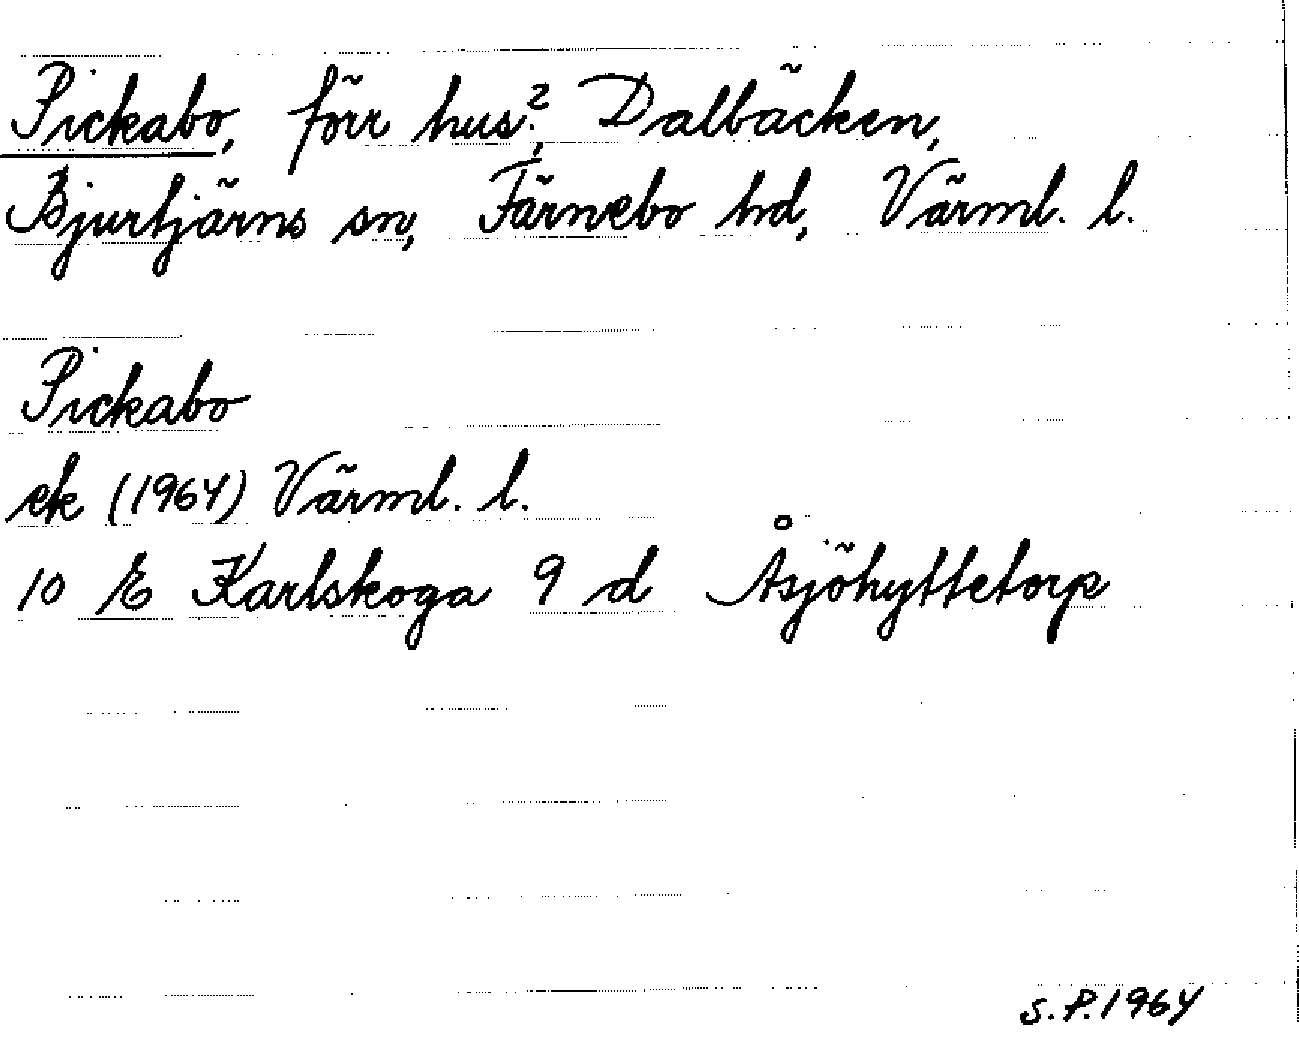 Pickabo, förr hus?, Dalbäcken,
Bjurtjärns sn, Färnebo hd, Värml. l.
Pickabo
ek (1964) Värml. l.
10 E Karlskoga 9 d Åsjöhyttetorp
S.P. 1964